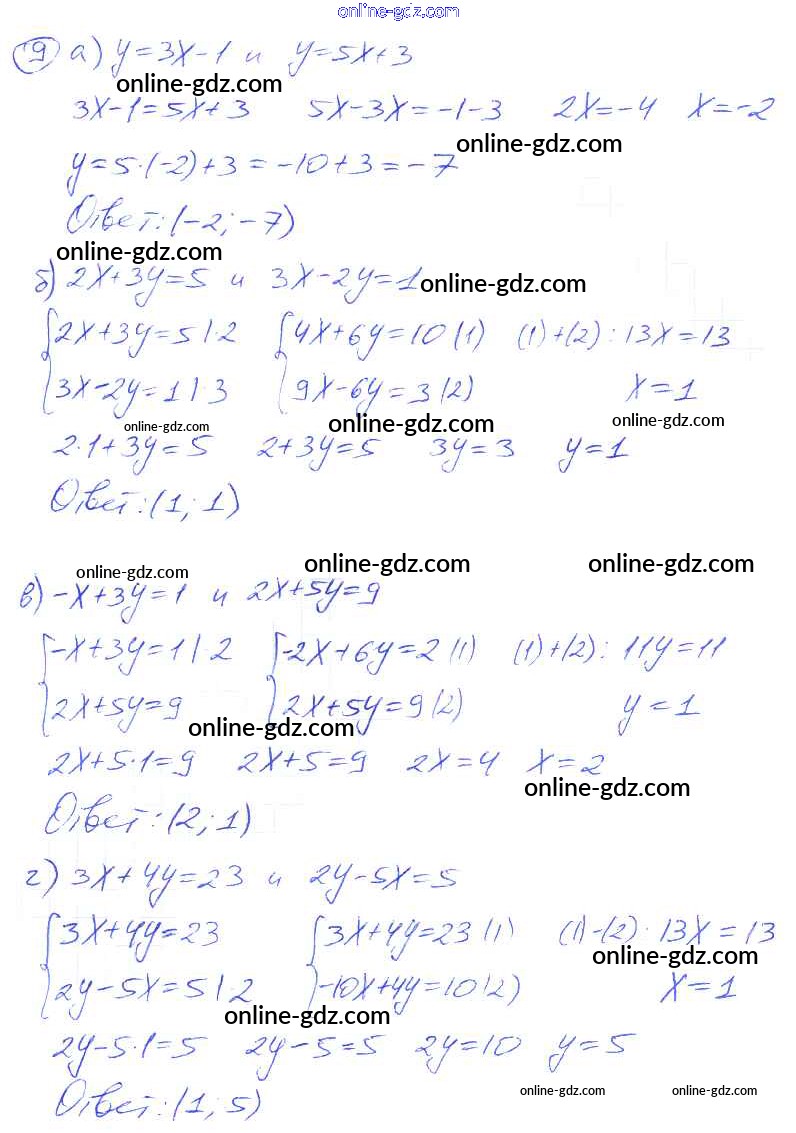 online-gdz.com
9 а) y=3x-1 и y=5x+3
online-gdz.com
3x-1=5x+3 5x-3x=-1-3 2x=-4 x=-2
online-gdz.com
y=5·(-2)+3=-10+3=-7
Ответ: (-2; -7)
online-gdz.com
б) 2x+3y=5 и 3x-2y=1
online-gdz.com
{2x+3y=5 |·2 {4x+6y=10 (1) (1)+(2): 13x=13
{3x-2y=1 |·3 {9x-6y=3 (2) x=1
online-gdz.com online-gdz.com online-gdz.com
2·1+3y=5 2+3y=5 3y=3 y=1
Ответ: (1; 1)
online-gdz.com online-gdz.com online-gdz.com
в) -x+3y=1 и 2x+5y=9
{-x+3y=1 |·2 {-2x+6y=2 (1) (1)+(2): 11y=11
{2x+5y=9 {2x+5y=9 (2) y=1
online-gdz.com
2x+5·1=9 2x+5=9 2x=4 x=2
online-gdz.com
Ответ: (2; 1)
г) 3x+4y=23 и 2y-5x=5
{3x+4y=23 {3x+4y=23 (1) (1)-(2): 13x=13
online-gdz.com
{2y-5x=5 |·2 {-10x+4y=10 (2) x=1
online-gdz.com
2y-5·1=5 2y-5=5 2y=10 y=5
online-gdz.com online-gdz.com
Ответ: (1; 5)